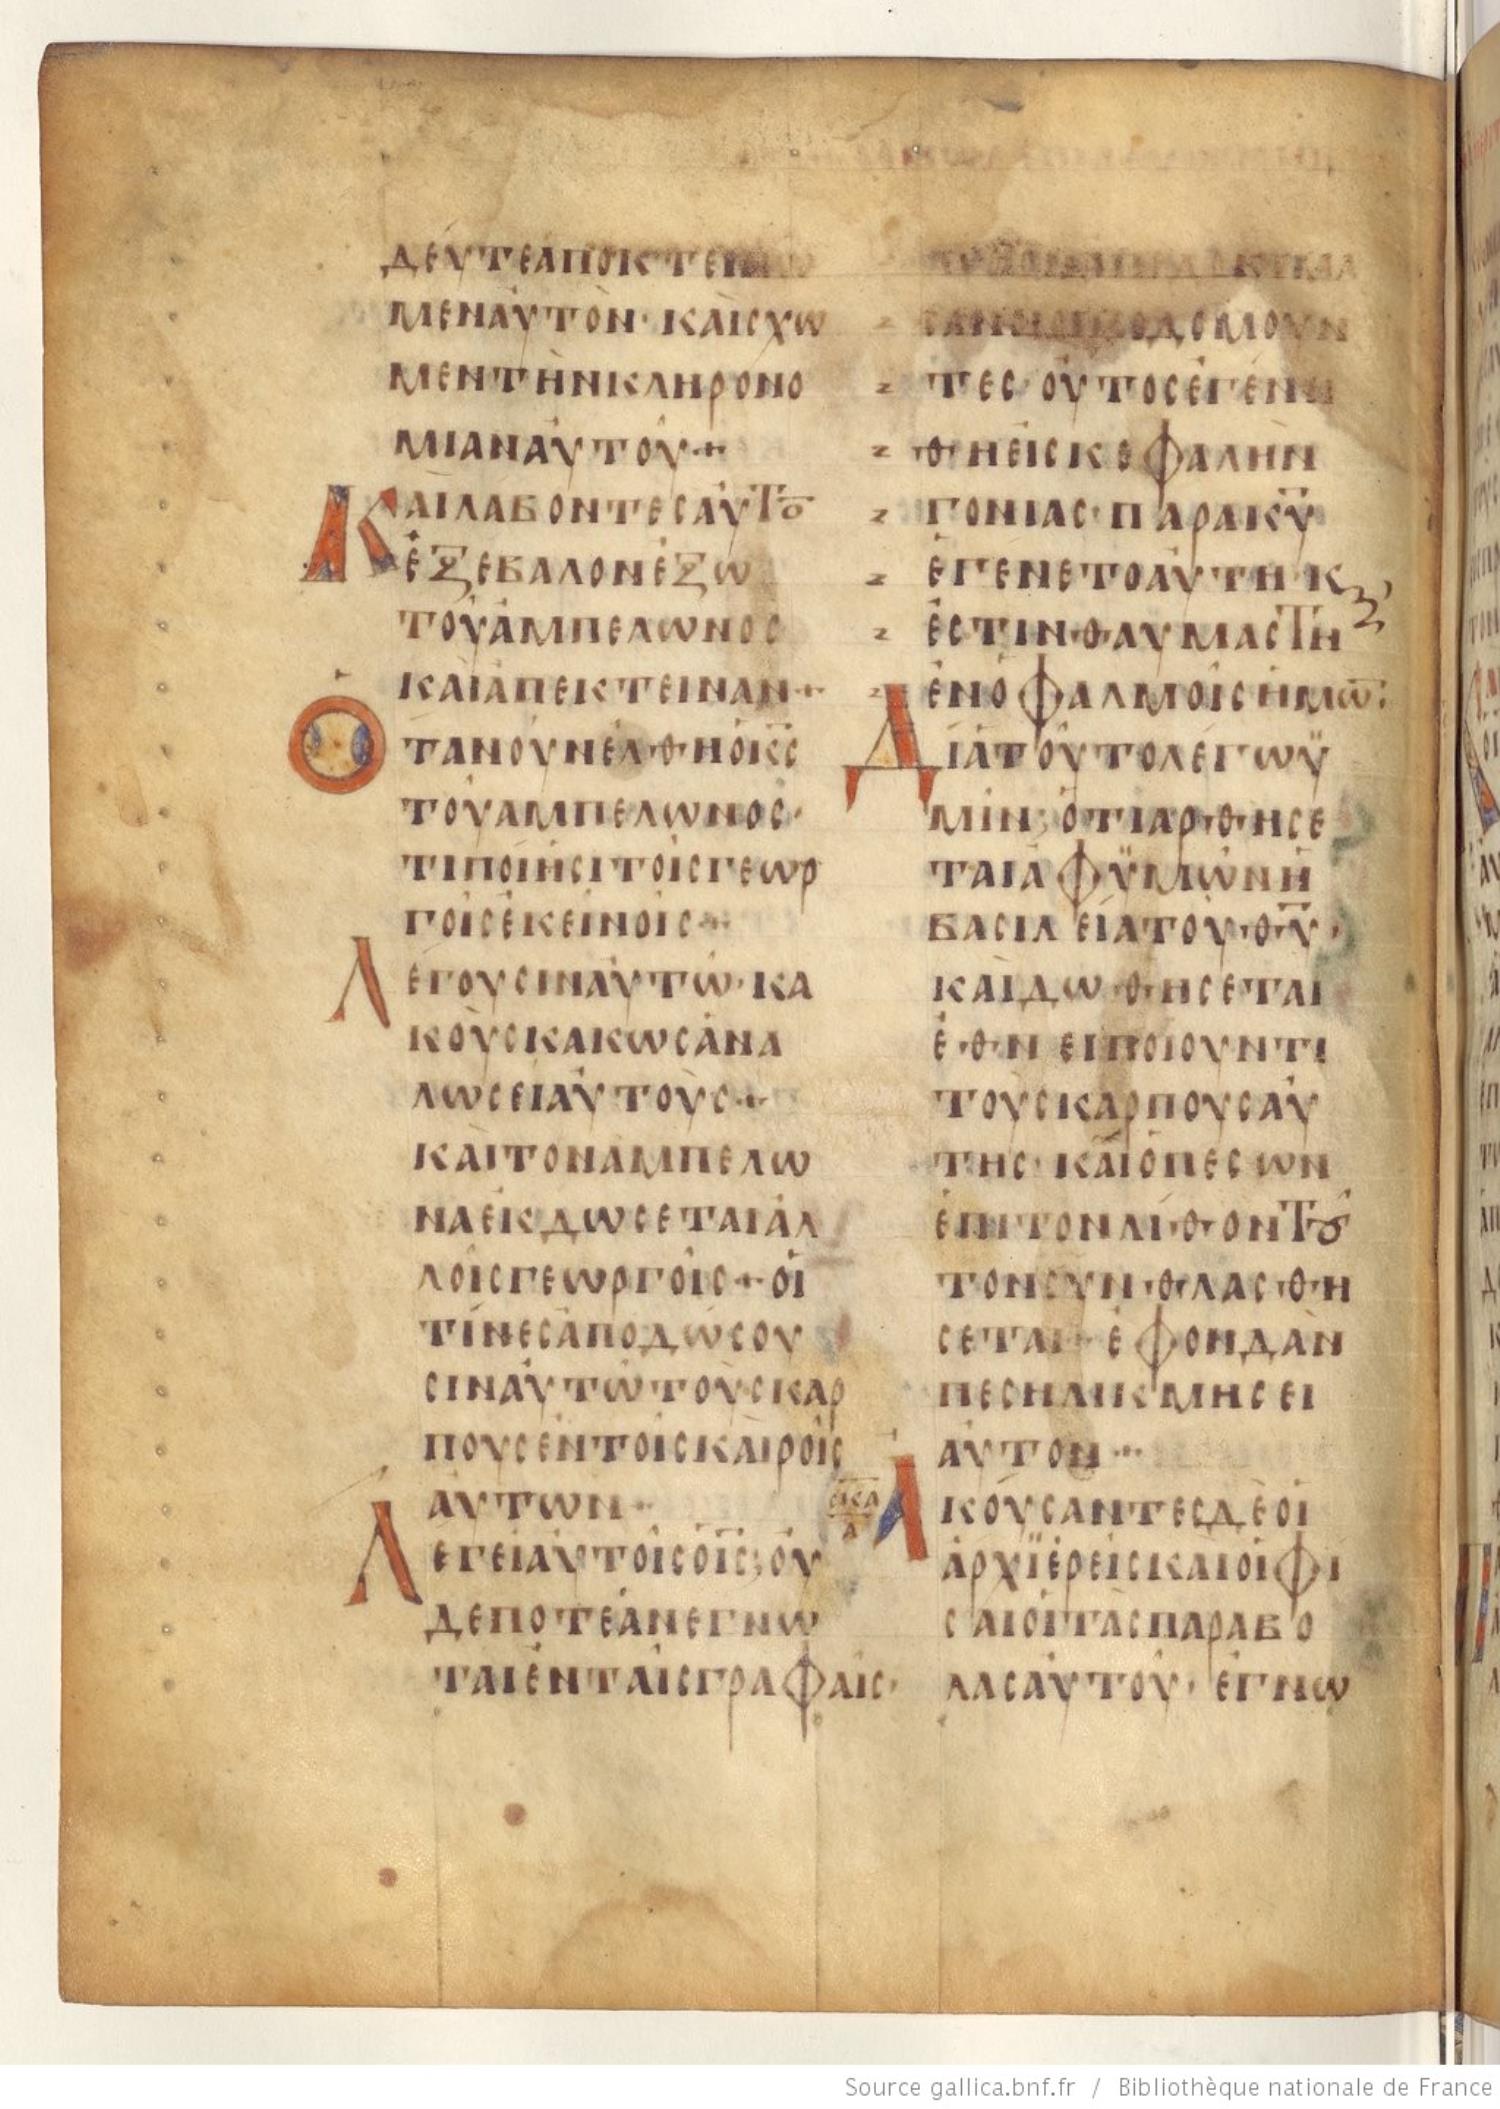 ΔΕΥΤΕΑΠΟΚΤΕΙΝΩ
ΜΕΝΑΥΤΟΝ· ΚΑΙϹΧΩ
ΜΕΝΤΗΝΚΛΗΡΟΝΟ
ΜΙΑΝΑΥΤΟΥ+
ΚΑΙΛΑΒΟΝΤΕϹΑΥΤΟ̅
ΕΞΕΒΑΛΟΝΕΞΩ
ΤΟΥΑΜΠΕΛΩΝΟϹ
ΚΑΙΑΠΕΚΤΕΙΝΑΝ+
ΟΤΑΝΟΥΝΕΛΘΗΟΚ̅Ϲ̅
ΤΟΥΑΜΠΕΛΩΝΟϹ·
ΤΙΠΟΙΗϹΙΤΟΙϹΓΕΩΡ
ΓΟΙϹΕΚΕΙΝΟΙϹ+
ΛΕΓΟΥϹΙΝΑΥΤΩ· ΚΑ
ΚΟΥϹΚΑΚΩϹΑΝΑ
ΛΩϹΕΙΑΥΤΟΥϹ+
ΚΑΙΤΟΝΑΜΠΕΛΩ
ΝΑΕΚΔΩϹΕΤΑΙΑΛ
ΛΟΙϹΓΕΩΡΓΟΙϹ+ΟΙ
ΤΙΝΕϹΑΠΟΔΩϹΟΥ
ϹΙΝΑΥΤΩΤΟΥϹΚΑΡ
ΠΟΥϹΕΝΤΟΙϹΚΑΙΡΟΙϹ
ΑΥΤΩΝ+
ΛΕΓΕΙΑΥΤΟΙϹΟΙ̅Ϲ̅; ΟΥ
ΔΕΠΟΤΕΑΝΕΓΝΩ
ΤΑΙΕΝΤΑΙϹΓΡΑΦΑΙϹ·
ΤΕϹ· ΟΥΤΟϹΕΓΕΝΗ
ΘΗΕΙϹΚΕΦΑΛΗΝ
ΓΟΝΙΑϹ· ΠΑΡΑΚ̅Υ̅
ΕΓΕΝΕΤΟΑΥΤΗ· Κϗ
ΕϹΤΙΝΘΑΥΜΑϹΤΗ
ΕΝΟΦΑΛΜΟΙϹΗΜΩ̅:
ΔΙΑΤΟΥΤΟΛΕΓΩΫ
ΜΙΝ; ΟΤΙΑΡΘΗϹΕ
ΤΑΙΑΦΫΜΩΝΗ
ΒΑϹΙΛΕΙΑΤΟΥΘ̅Υ̅·
ΚΑΙΔΩΘΗϹΕΤΑΙ
ΕΘΝΕΙΠΟΙΟΥΝΤΙ
ΤΟΥϹΚΑΡΠΟΥϹΑΥ
ΤΗϹ· ΚΑΙΟΠΕϹΩΝ
ΕΠΙΤΟΝΛΙΘΟΝΤȣ
ΤΟΝϹΥΝΘΛΑϹΘΗ
ϹΕΤΑΙ· ΕΦΟΝΔΑΝ
ΠΕϹΗΛΙΚΜΗϹΕΙ
ΑΥΤΟΝ+
ΑΚΟΥϹΑΝΤΕϹΔΕΟΙ
ΑΡΧΪΕΡΕΙϹΚΑΙΟΙΦΙ
ϹΑΙΟΙΤΑϹΠΑΡΑΒΟ
ΛΑϹΑΥΤΟΥ· ΕΓΝΩ
Source gallica.bnf.fr / Bibliothèque nationale de France